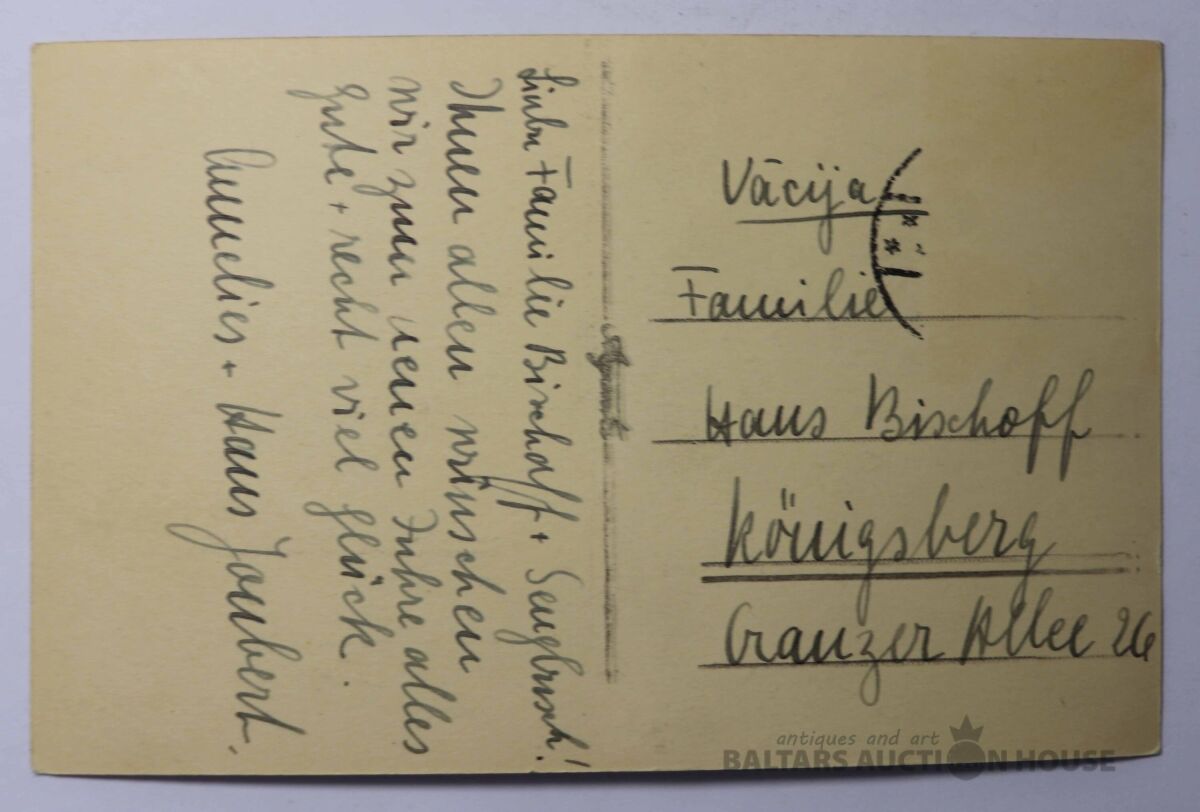 Liebe Familie Bischoff +
Ihnen allen wünschen
wir zum neuen Jahre alles
gute + recht viel glück.
Annelies + Hans Joubert.
Vācija
Familie
Hans Bischoff
Königsberg
Cranzer Allee 26
antiques and art
BALTARS AUCTION HOUSE